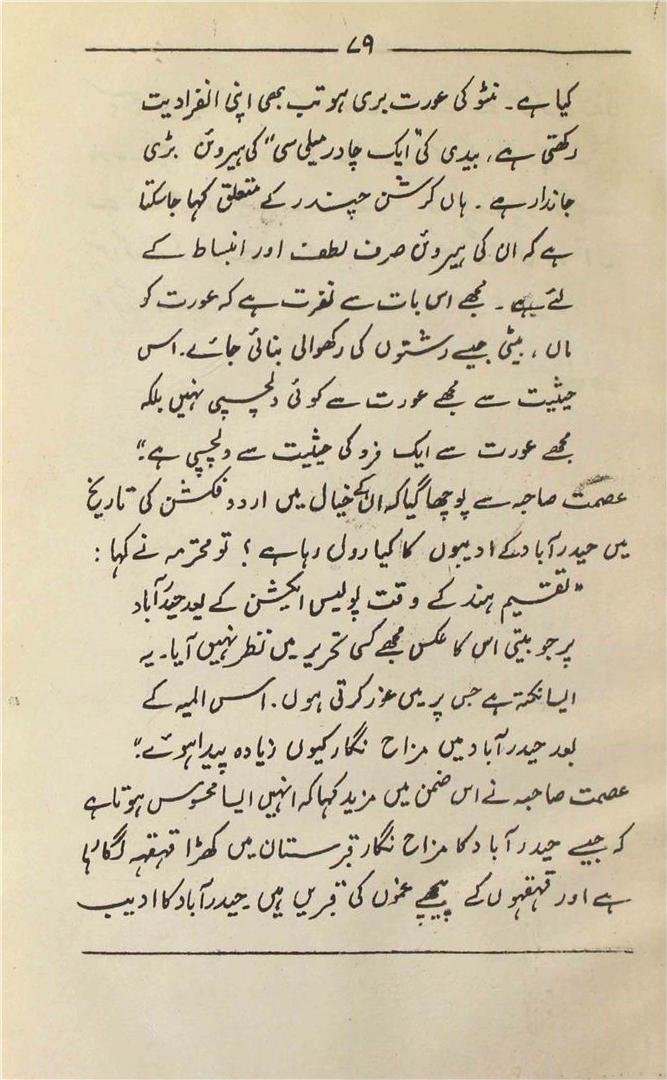 ۷۹
کیا ہے۔ منٹو کی عورت بری ہو تب بھی اپنی انفرادیت
رکھتی ہے، بیدی کی "ایک چادر میلی سی" کی ہیروئن بڑی
جاندار ہے۔ ہاں کرشن چندر کے متعلق کہا جاسکتا
ہے کہ ان کی ہیروئن صرف لطف اور انبساط کے
لئے ہے۔ مجھے اس بات سے نفرت ہے کہ عورت کو
ماں، بیٹی جیسے رشتوں کی رکھوالی بنائی جائے۔ اس
حیثیت سے مجھے عورت سے کوئی دلچسپی نہیں بلکہ
مجھے عورت سے ایک فرد کی حیثیت سے دلچسپی ہے۔"
عصمت صاحبہ سے پوچھا گیا کہ ان کے خیال میں اردو فکشن کی تاریخ
میں حیدرآباد کے ادیبوں کا کیا رول رہا ہے؟ تو محترمہ نے کہا :
"تقسیم ہند کے وقت پولیس ایکشن کے بعد حیدرآباد
پر جو بیتی اس کا عکس مجھے کسی تحریر میں نظر نہیں آیا۔ یہ
ایسا نکتہ ہے جس پر میں غور کرتی ہوں۔ اس المیہ کے
بعد حیدرآباد میں مزاح نگار کیوں زیادہ پیدا ہوئے۔"
عصمت صاحبہ نے اس ضمن میں مزید کہا کہ انہیں ایسا محسوس ہوتا ہے
کہ جیسے حیدرآباد کا مزاح نگار قبرستان میں کھڑا قہقہہ لگا رہا
ہے اور قہقہوں کے پیچھے غموں کی قبریں ہیں۔ حیدرآباد کا ادیب